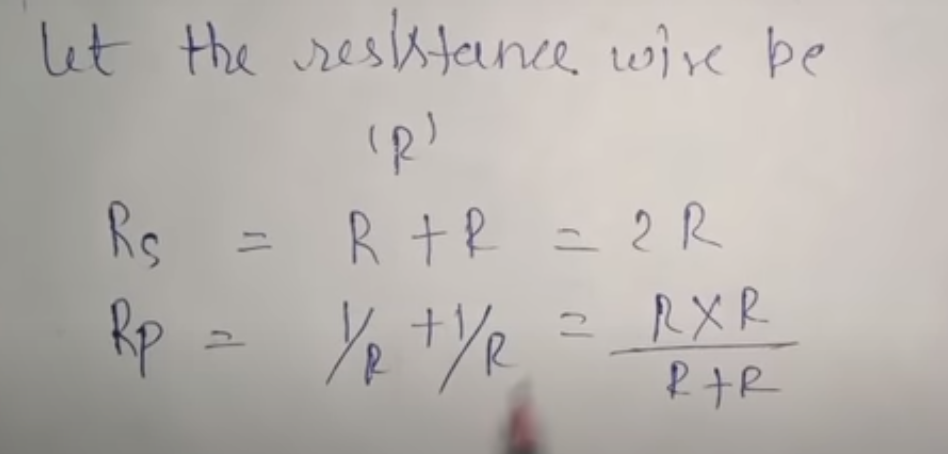 Let the resistance wire be
(R)
Rs = R + R = 2R
Rp = 1/R + 1/R = R×R/R+R